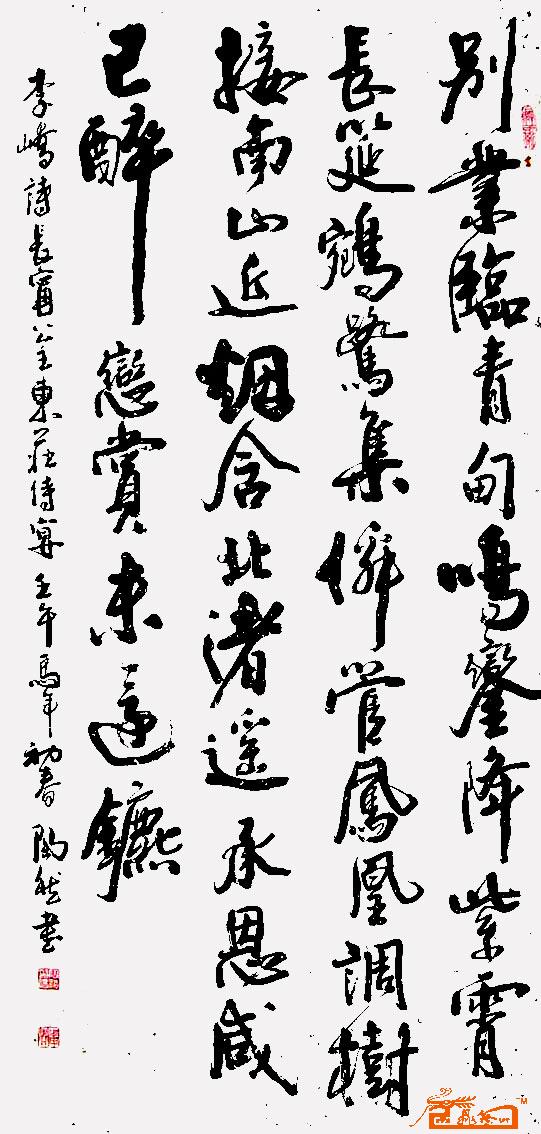 别業臨青甸鳴鑾降紫霄
長筵鵷鷺集僊管鳳凰調樹
接南山近烟含北渚遥承恩咸
已醉戀賞未還鑣
李嶠詩長甯公主東莊侍宴壬午馬年初春陶然書